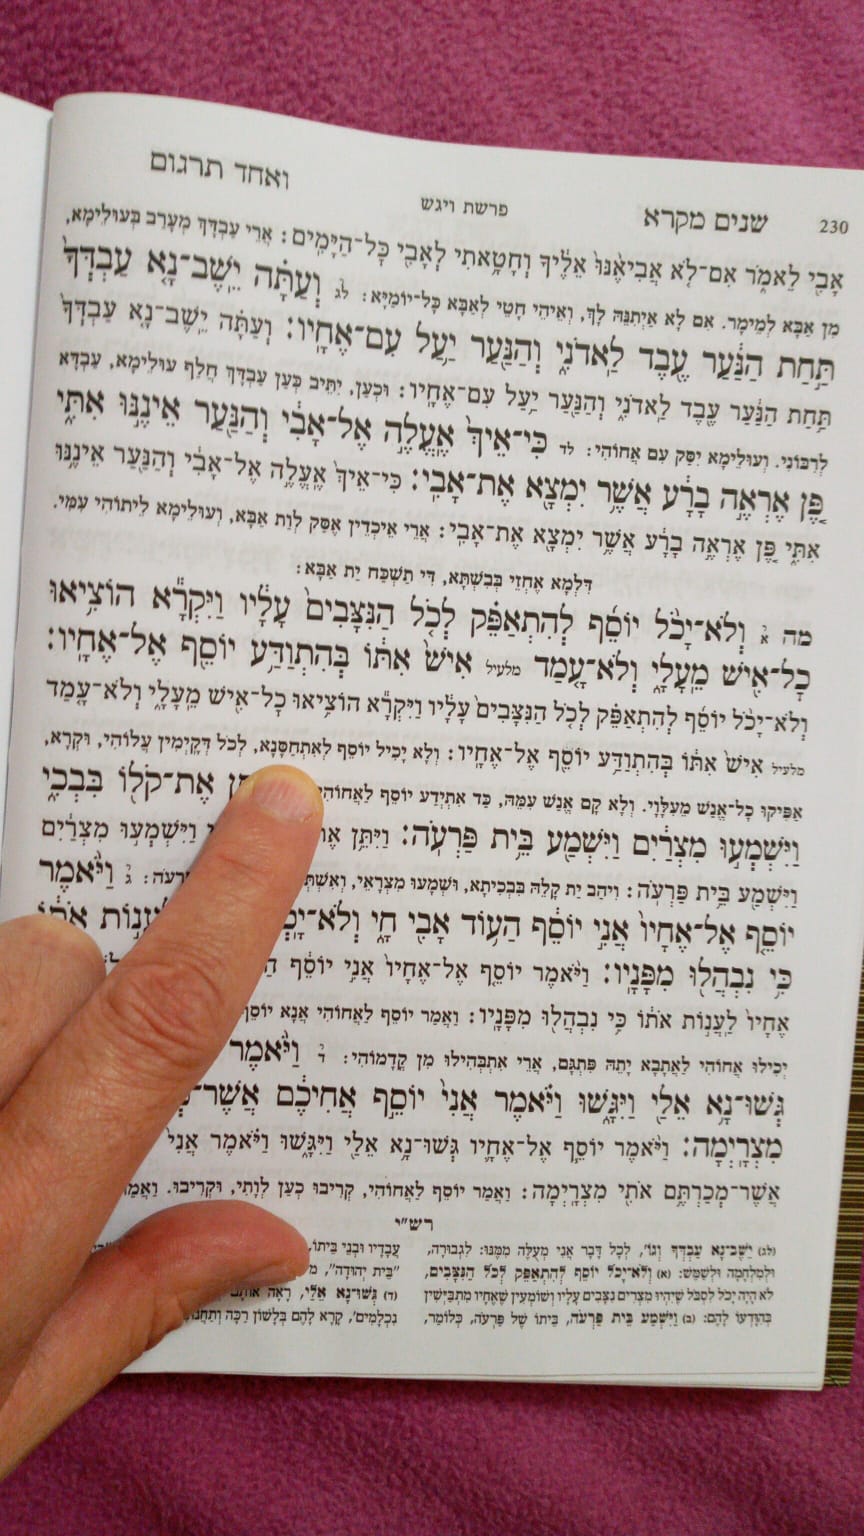 230 שנים מקרא פרשת ויגש ואחד תרגום
אָבִ֖י לֵאמֹ֑ר אִם־לֹ֤א אֲבִיאֶ֨נּוּ֙ אֵלֶ֔יךָ וְחָטָ֥אתִי לְאָבִ֖י כָּל־הַיָּמִֽים׃ אֲרֵי עַבְדָּךְ מְעָרַב בְּעוּלֵימָא,
מִן אַבָּא לְמֵימָר. אִם לָא אַיְתִנֵּהּ לָךְ, וְאֵיהֵי חָטֵי לְאַבָּא כָּל־יוֹמַיָּא׃ לג וְעַתָּ֗ה יֵֽשֶׁב־נָ֤א עַבְדְּךָ֙
תַּ֣חַת הַנַּ֔עַר עֶ֖בֶד לַֽאדֹנִ֑י וְהַנַּ֖עַר יַ֥עַל עִם־אֶחָֽיו׃ וְעַתָּ֗ה יֵֽשֶׁב־נָ֤א עַבְדְּךָ֙
תַּ֣חַת הַנַּ֔עַר עֶ֖בֶד לַֽאדֹנִ֑י וְהַנַּ֖עַר יַ֥עַל עִם־אֶחָֽיו׃ וּכְעַן, יִתֵּיב כְּעַן עַבְדָּךְ חֲלַף עוּלֵימָא, עַבְדָּא
לְרִבּוֹנִי. וְעוּלֵימָא יִסַּק עִם אֲחוֹהִי׃ לד כִּי־אֵיךְ֙ אֶֽעֱלֶ֣ה אֶל־אָבִ֔י וְהַנַּ֖עַר אֵינֶ֣נּוּ אִתִּ֑י
פֶּ֚ן אֶרְאֶ֣ה בָרָ֔ע אֲשֶׁ֥ר יִמְצָ֖א אֶת־אָבִֽי׃ כִּי־אֵיךְ֙ אֶֽעֱלֶ֣ה אֶל־אָבִ֔י וְהַנַּ֖עַר אֵינֶ֣נּוּ
אִתִּ֑י פֶּ֚ן אֶרְאֶ֣ה בָרָ֔ע אֲשֶׁ֥ר יִמְצָ֖א אֶת־אָבִֽי׃ אֲרֵי אֵיכְדֵין אֶסַּק לְוָת אַבָּא, וְעוּלֵימָא לֵיתוֹהִי עִמִּי.
דִּלְמָא אֶחְזֵי בְּבִשְׁתָּא, דִּי תַשְׁכַּח יַת אַבָּא׃
מה א וְלֹֽא־יָכֹ֨ל יוֹסֵ֜ף לְהִתְאַפֵּ֗ק לְכֹ֤ל הַנִּצָּבִים֙ עָלָ֔יו וַיִּקְרָ֕א הוֹצִ֥יאוּ
כָל־אִ֖ישׁ מֵֽעָלָ֑י וְלֹא־עָ֤מַד מלעיל אִישׁ֙ אִתּ֔וֹ בְּהִתְוַדַּ֥ע יוֹסֵ֖ף אֶל־אֶחָֽיו׃
וְלֹֽא־יָכֹ֨ל יוֹסֵ֜ף לְהִתְאַפֵּ֗ק לְכֹ֤ל הַנִּצָּבִים֙ עָלָ֔יו וַיִּקְרָ֕א הוֹצִ֥יאוּ כָל־אִ֖ישׁ מֵֽעָלָ֑י וְלֹא־עָ֤מַד
מלעיל אִישׁ֙ אִתּ֔וֹ בְּהִתְוַדַּ֥ע יוֹסֵ֖ף אֶל־אֶחָֽיו׃ וְלָא יָכֵיל יוֹסֵף לְאִתְחַסָּנָא, לְכֹל דְּקָיְמִין עִלּוֹהִי, וּקְרָא,
אַפִּיקוּ כָל־אֱנַשׁ מֵעִלָּוָי. וְלָא קָם אֱנַשׁ עִמֵּהּ, כַּד אִתְיְדַע יוֹסֵף לַאֲחוֹהִי אֶת־קֹל֖וֹ בִּבְכִ֑י
וַיִּשְׁמְע֣וּ מִצְרַ֔יִם וַיִּשְׁמַ֖ע בֵּ֥ית פַּרְעֹֽה׃ וַיִּתֵּ֥ן וַיִּשְׁמְע֣וּ מִצְרַ֔יִם
וַיִּשְׁמַ֖ע בֵּ֥ית פַּרְעֹֽה׃ וִיהַב יַת קָלֵהּ בִּבְכִיתָא, וּשְׁמָעוּ מִצְרָאֵי, ג וַיֹּ֨אמֶר
יוֹסֵ֤ף אֶל־אֶחָיו֙ אֲנִ֣י יוֹסֵ֔ף הַע֥וֹד אָבִ֖י חָ֑י אֹת֔וֹ
כִּ֥י נִבְהֲל֖וּ מִפָּנָֽיו׃ וַיֹּ֨אמֶר יוֹסֵ֤ף אֶל־אֶחָיו֙ אֲנִ֣י יוֹסֵ֔ף
אֶחָיו֙ לַֽעֲנ֣וֹת אֹת֔וֹ כִּ֥י נִבְהֲל֖וּ מִפָּנָֽיו׃ וַאֲמַר יוֹסֵף לַאֲחוֹהִי אֲנָא יוֹסֵף
יְכִילוּ אֲחוֹהִי לַאֲתָבָא יָתֵהּ פִּתְגָם, אֲרֵי אִתְבְּהִילוּ מִן קֳדָמוֹהִי׃ ד וַיֹּ֨אמֶר
גְּשׁוּ־נָ֥א אֵלַ֖י וַיִּגָּ֑שׁוּ וַיֹּ֗אמֶר אֲנִי֙ יוֹסֵ֣ף אֲחִיכֶ֔ם
מִצְרָֽיְמָה׃ וַיֹּ֨אמֶר יוֹסֵ֧ף אֶל־אֶחָ֛יו גְּשׁוּ־נָ֥א אֵלַ֖י וַיִּגָּ֑שׁוּ וַיֹּ֗אמֶר אֲנִי֙
אֲשֶׁר־מְכַרְתֶּ֥ם אֹתִ֖י מִצְרָֽיְמָה׃ וַאֲמַר יוֹסֵף לַאֲחוֹהִי, קְרִיבוּ כְעַן לְוָתִי, וּקְרִיבוּ.
רש״י
(לג) יֵשֶׁב־נָא עַבְדְּךָ וְגוֹ', לְכָל דָּבָר אֲנִי מְעֻלֶּה מִמֶּנּוּ׃ לִגְבוּרָה,
וּלְמִלְחָמָה וּלְשַׁמֵּשׁ׃ (א) וְלֹא־יָכֹל יוֹסֵף לְהִתְאַפֵּק לְכֹל הַנִּצָּבִים,
לֹא הָיָה יָכֹל לִסְבֹּל שֶׁיִּהְיוּ מִצְרִים נִצָּבִים עָלָיו וְשׁוֹמְעִין שֶׁאֶחָיו מִתְבַּיְּשִׁין
בְּהִוָּדְעוֹ לָהֶם׃ (ב) וַיִּשְׁמַע בֵּית פַּרְעֹה, בֵּיתוֹ שֶׁל פַּרְעֹה, כְּלוֹמַר,
עֲבָדָיו וּבְנֵי בֵיתוֹ,
"בֵּית יְהוּדָה",
(ד) גְּשׁוּ־נָא אֵלַי, רָאָה
נִכְלָמִים', קָרָא לָהֶם בְּלָשׁוֹן רַכָּה